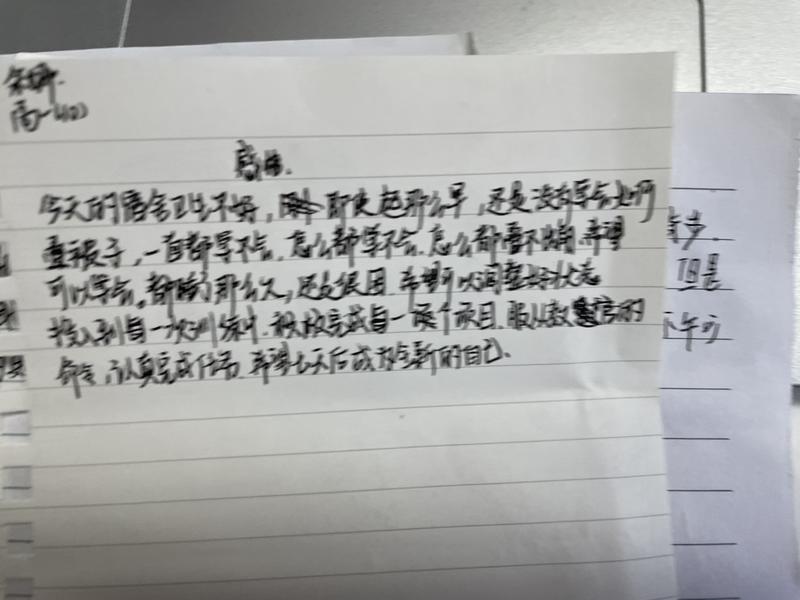 高一(10)
感悟.
今天的宿舍卫生不好, 即使起那么早, 还是没有学会如何
叠被子, 一直都学不会. 怎么都学不会. 怎么都叠不
可以学会. 都睡了那么久, 还是很困. 希望可以调整好状态
投入到每一次训练中. 积极完成每一项目. 服从教官的
命令, 认真完成任务. 希望七天后成为全新的自己.
步.
但是
下午